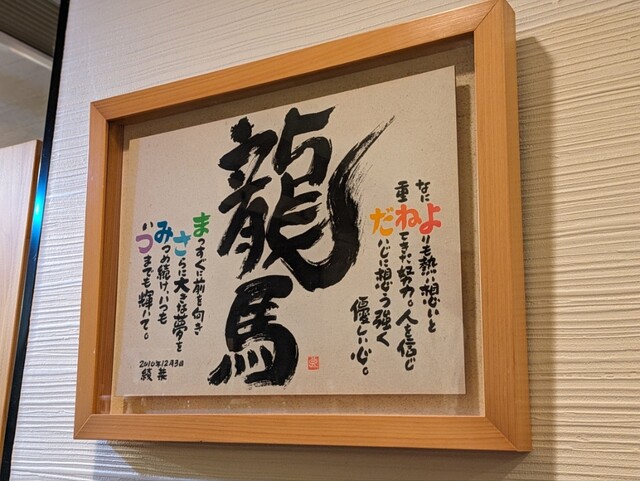 なによりも熱い想いと
重ねてきた努力。人を信じ
だいじに想う強く
優しい心。
龍馬
まっすぐに前を向き
さらに大きな夢を
みつめ続け、いつも
いつまでも輝いて。
2010年12月3日
綾菜